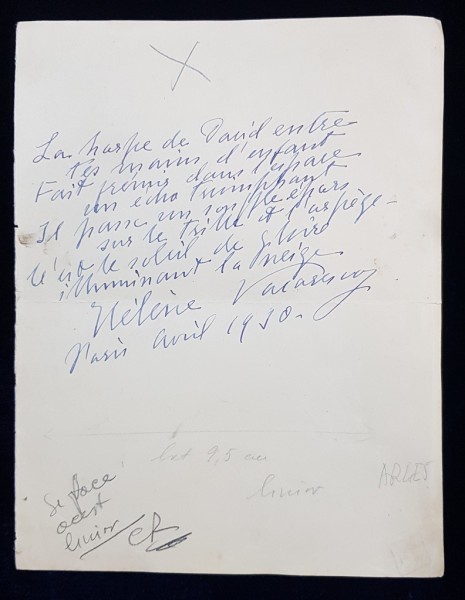 La harpe de David entre
tes mains d'enfant
Fait frémir dans l'espace
un écho triomphant
Il passe un souffle épars
sur le trille et l'arpège
C'est le soleil de gloire
illuminant la neige
Hélène Vacaresco
Paris avril 1930.
lat 9,5 cm
liniar
ARLES
Se face
acest
liniar